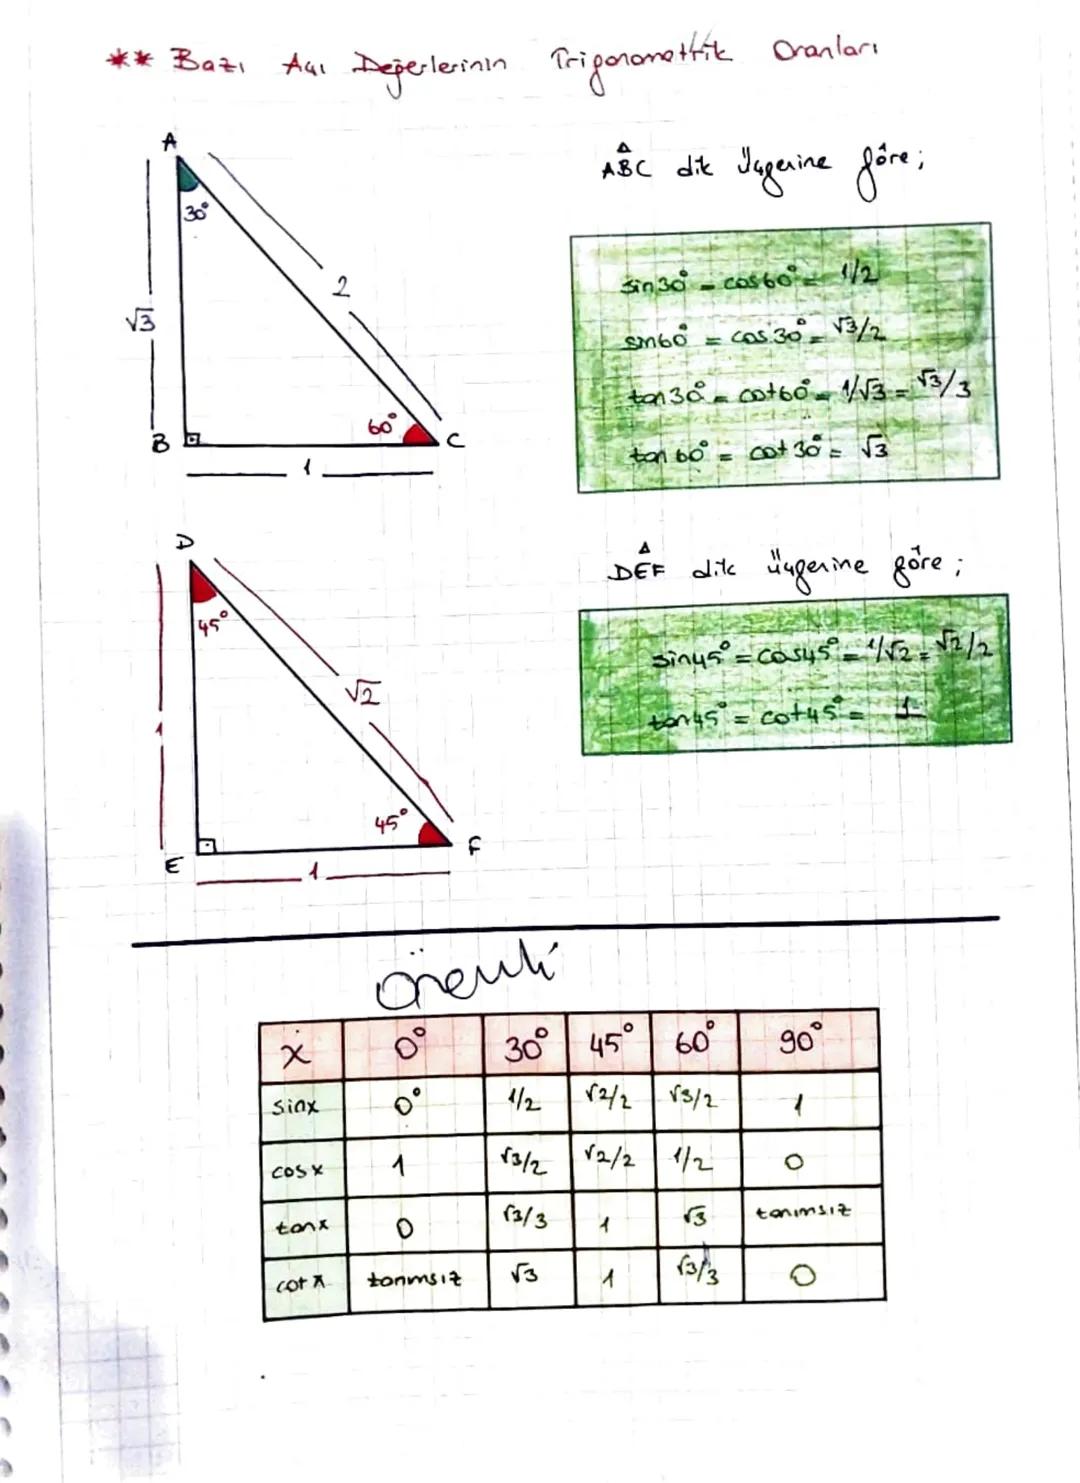 ** Bazı Açı Değerlerinin Trigonomettik Oranları
A
30°
2
√3
60°
B
C
1
ABC dik üçgenine göre;
sin30° = cos60° = 1/2
sin60° = cos30° = √3/2
tan30° = cot60° = 1/√3 = √3/3
tan60° = cot30° = √3
D
45°
√2
1
45°
E
F
1
DEF dik üçgenine göre;
sin45° = cos45° = 1/√2 = √2/2
tan45° = cot45° = 1
önemli
x 0° 30° 45° 60° 90°
sinx 0° 1/2 √2/2 √3/2 1
cosx 1 √3/2 √2/2 1/2 0
tanx 0 √3/3 1 √3 tanımsız
cotx tanımsız √3 1 √3/3 0